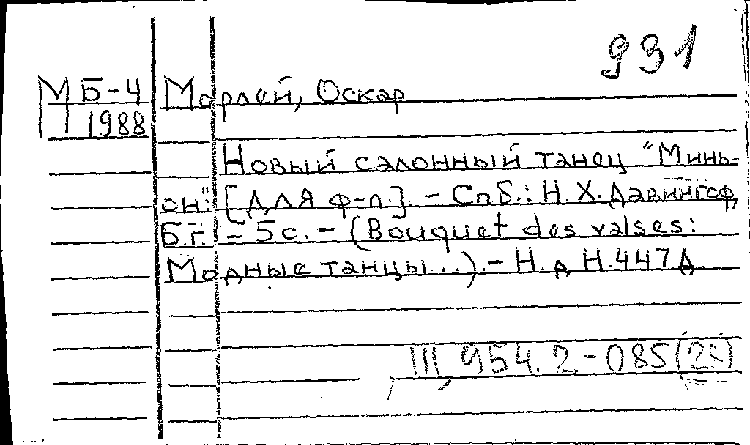 931
МБ-4 Марлей, Оскар
1988
Новый салонный танец "Минь-
он". [Для ф-п.]. - Спб.: Н.Х.Давингоф,
Б.г. - 5с. - (Bouquet des valses:
Модные танцы...). - Н.д Н.447Д
III, 954.2-085